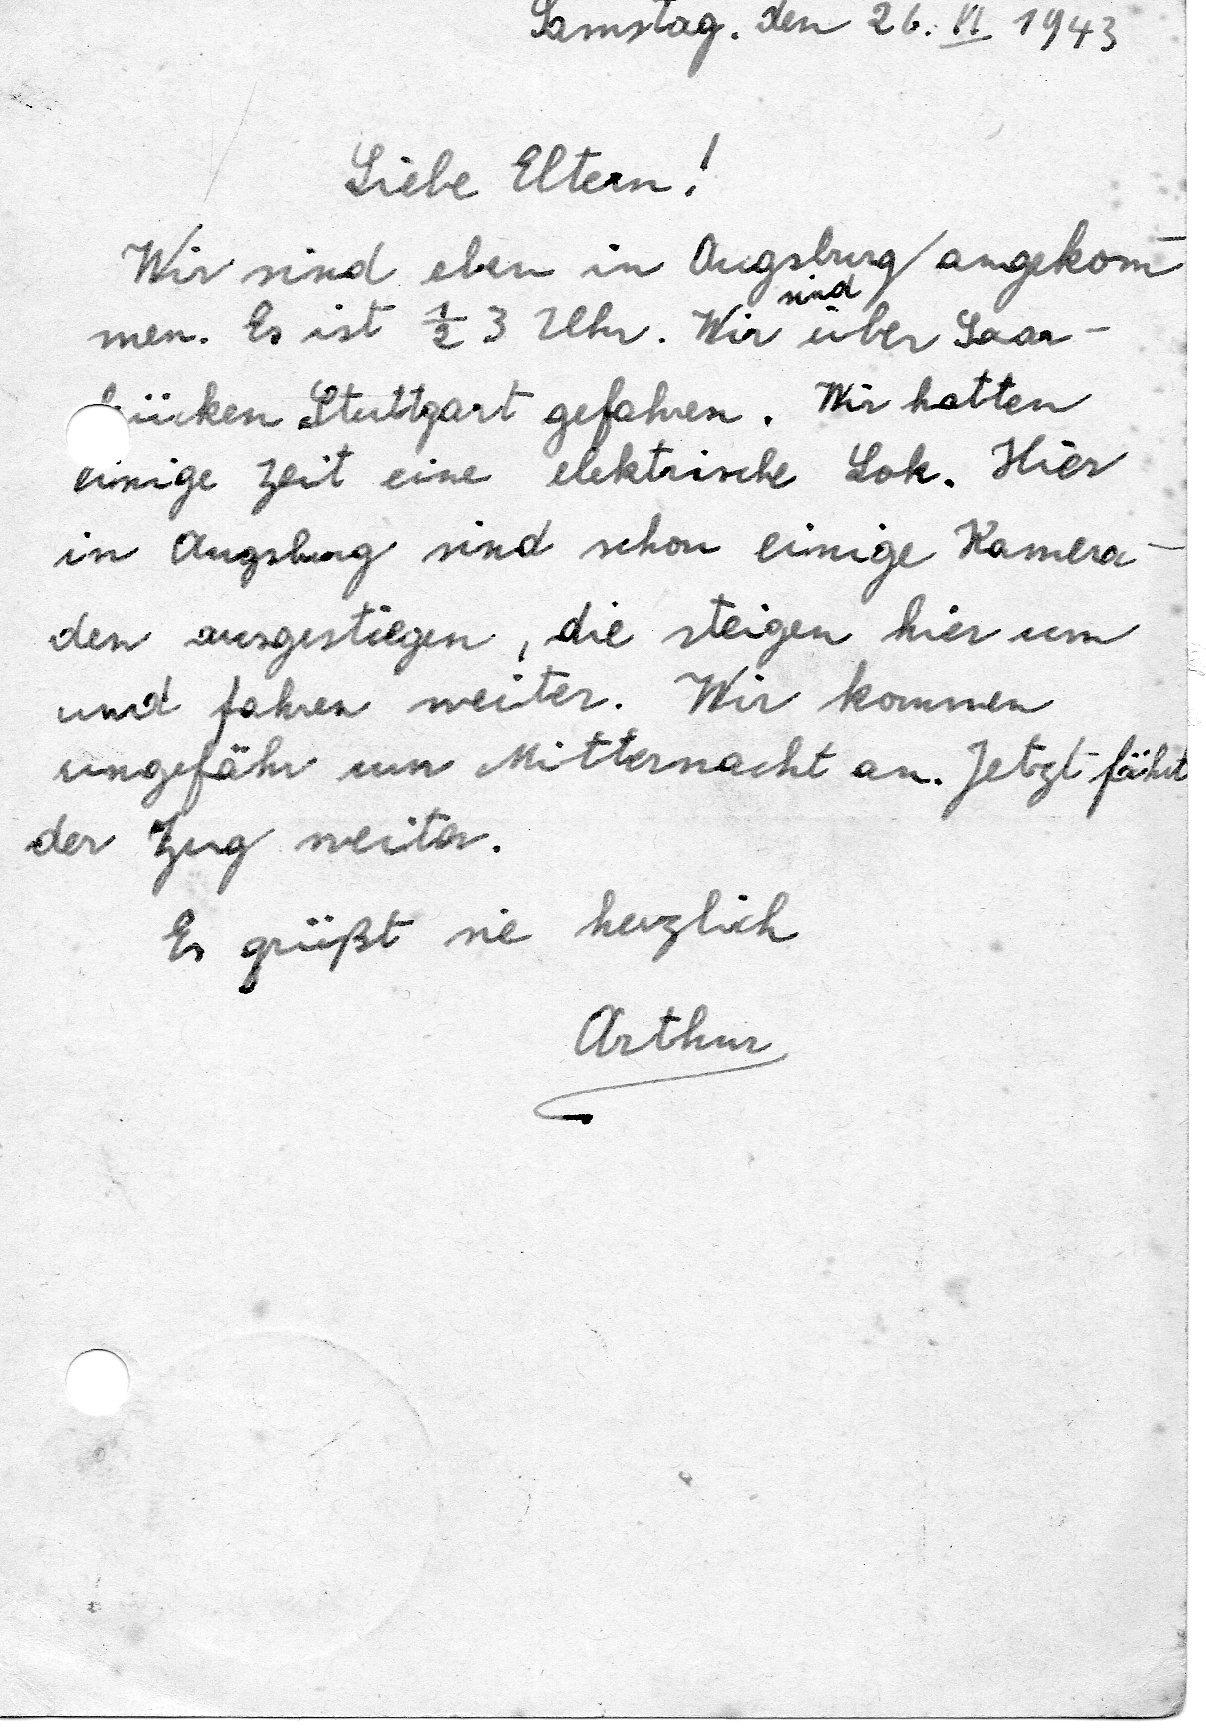 Samstag. den 26. VI 1943
Liebe Eltern!
Wir sind eben in Augsburg angekom-
men. Es ist ½ 3 Uhr. Wir sind über Saar-
brücken Stuttgart gefahren. Wir hatten
einige Zeit eine elektrische Lok. Hier
in Augsburg sind schon einige Kamera-
den ausgestiegen, die steigen hier um
und fahren weiter. Wir kommen
ungefähr um Mitternacht an. Jetzt fährt
der Zug weiter.
Es grüßt sie herzlich
Arthur